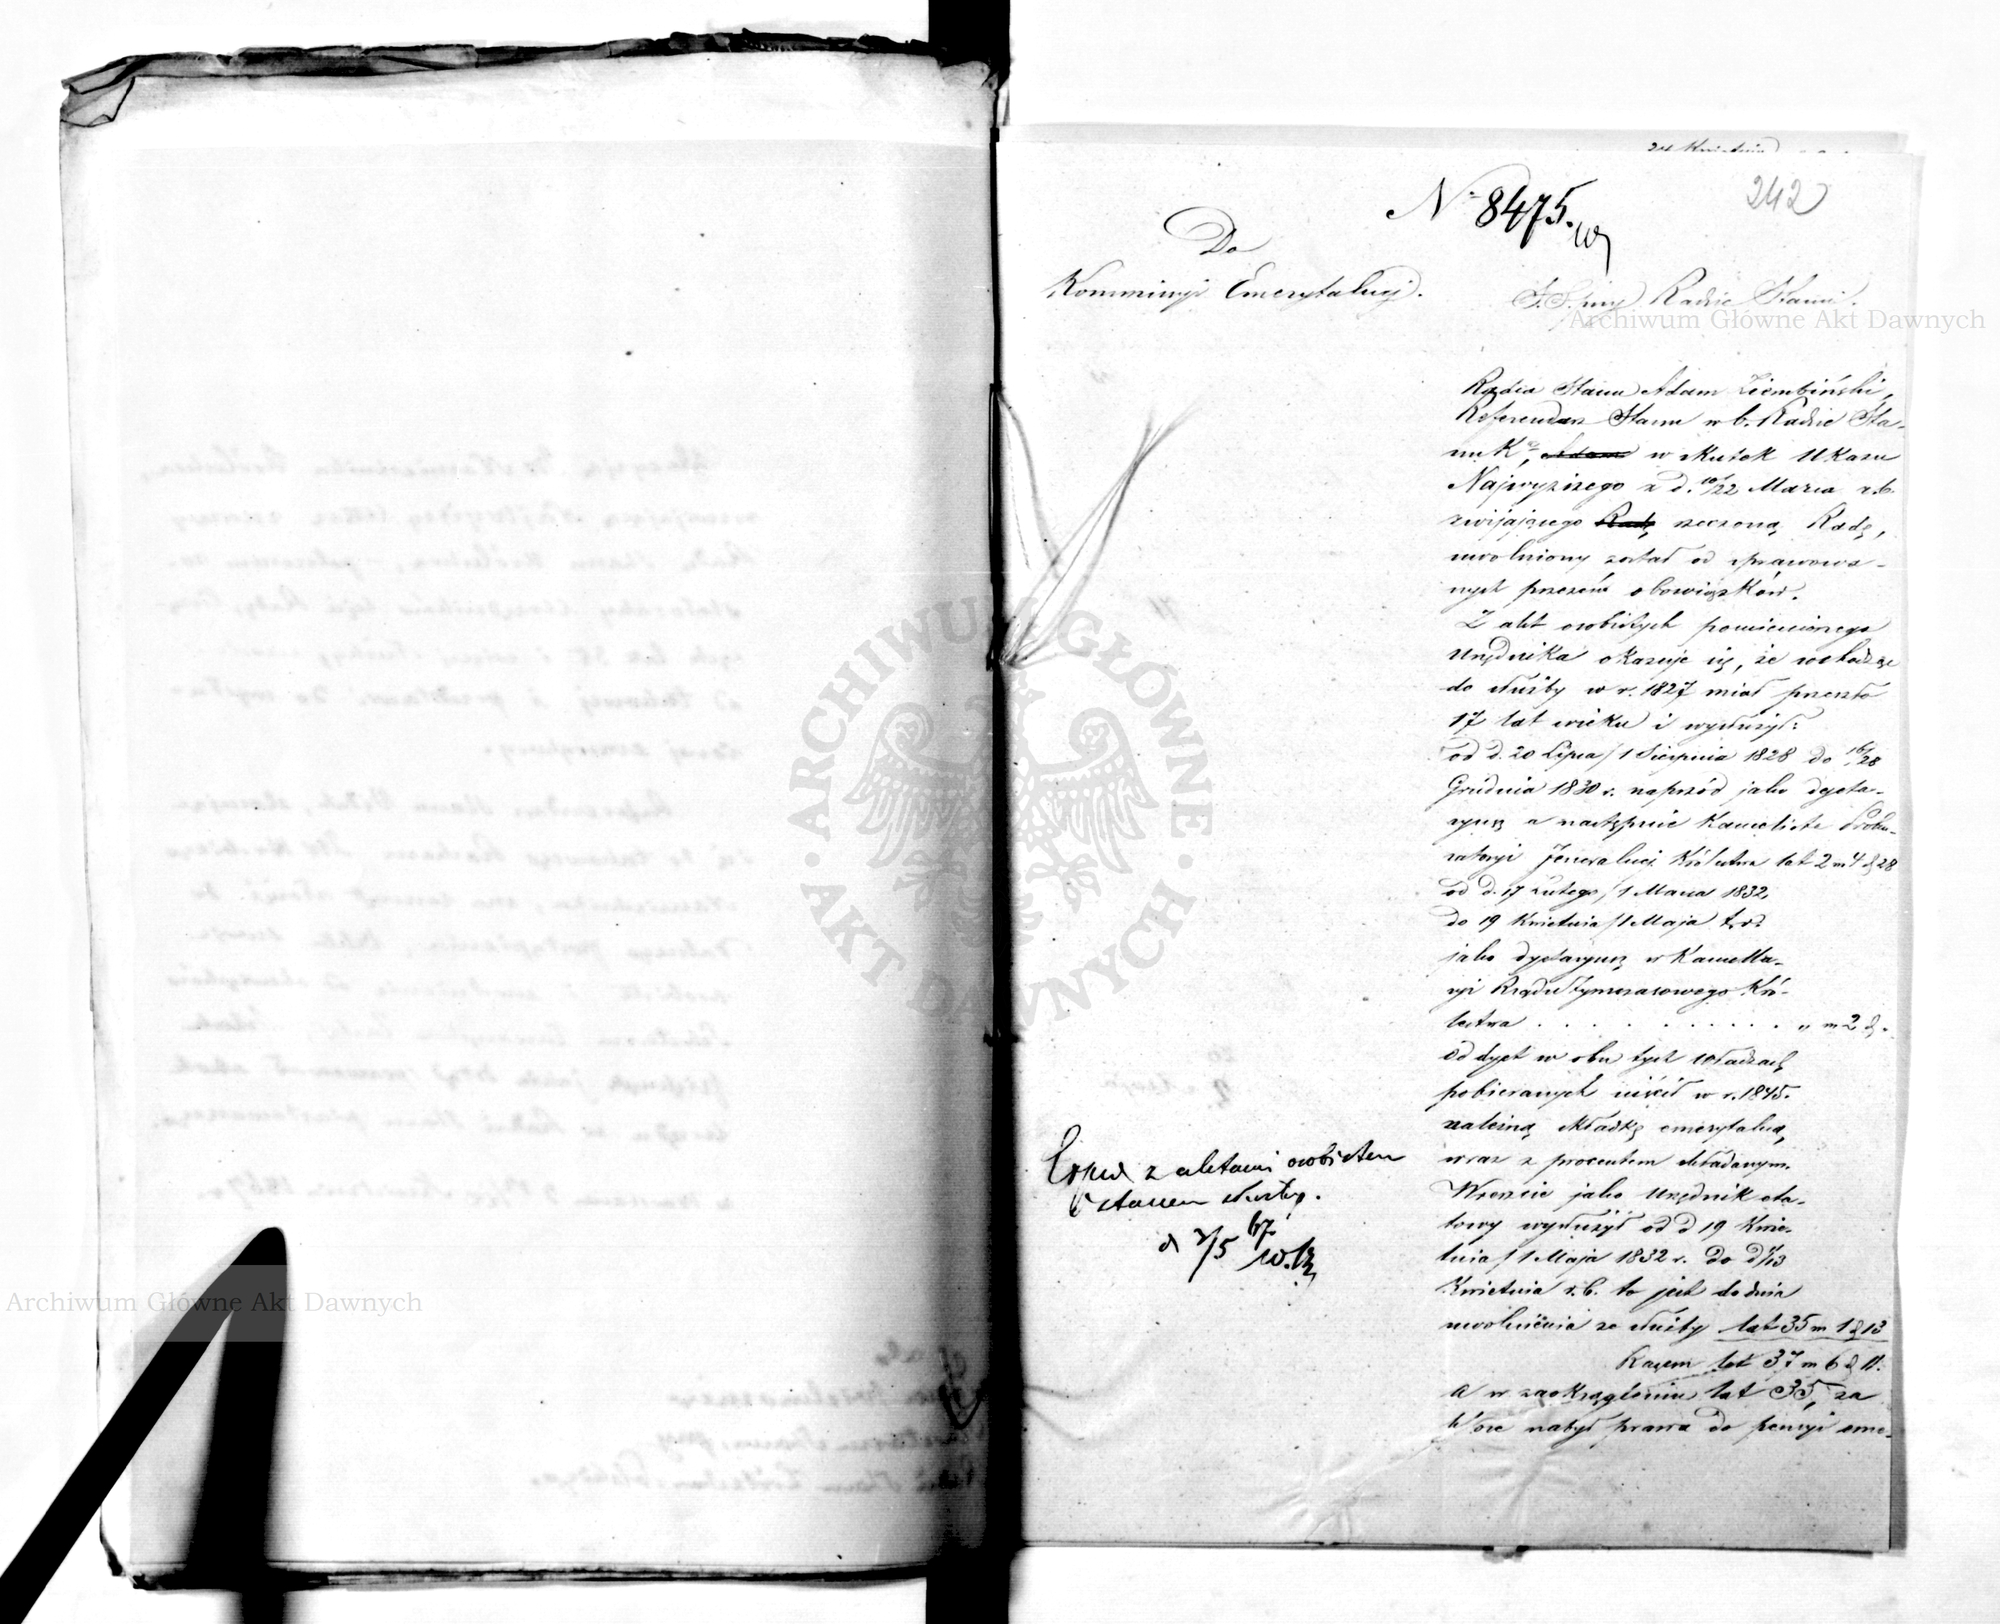 242
№ 8475.
Do
Kommissyi Emerytalnej.
Radzie Stanu.
Radca Stanu Adam Ziembiński,
Referendarz Stanu w b. Radzie Sta-
nu Kr, w skutek Ukazu
Najwyższego z d. 10/22 Marca r.b.
zwijającego rzeczoną Radę,
uwolniony został od sprawowa-
nych przezeń obowiązków.
Z akt osobistych pomienionego
Urzędnika okazuje się, że wchodząc
do służby w r. 1827 miał przeszło
17 lat wieku i wysłużył:
od d. 20 Lipca / 1 Sierpnia 1828 do 16/28
Grudnia 1830 r. naprzód jako dyeta-
ryusz a następnie Kancelista Proku-
ratoryi Jeneralnej Królestwa lat 2 m 4 d 28
od d. 17 Lutego / 1 Marca 1832,
do 19 Kwietnia / 1 Maja t.r.
jako dyetaryusz w Kancella-
ryi Rządu Tymczasowego Kró-
lestwa . . . . . . . . . . „ m 2 d „
Od dyet w obu tych władzach
pobieranych uiścił w r. 1845.
należną składkę emerytalną,
wraz z procentem składanym.
Wreszcie jako Urzędnik eta-
towy wysłużył od d 19 Kwie-
tnia / 1 Maja 1832 r. do d 1/13
Kwietnia r.b. to jest do dnia
uwolnienia ze służby lat 35 m 1 d 13
Razem lat 37 m 6 d 11.
a w zaokrągleniu lat 35, za
które nabył prawa do pensyi eme-
z aktami osobistemi
stanem służby.
d 2/5 67
Archiwum Główne Akt Dawnych
Archiwum Główne Akt Dawnych
ARCHIWUM GŁÓWNE AKT DAWNYCH